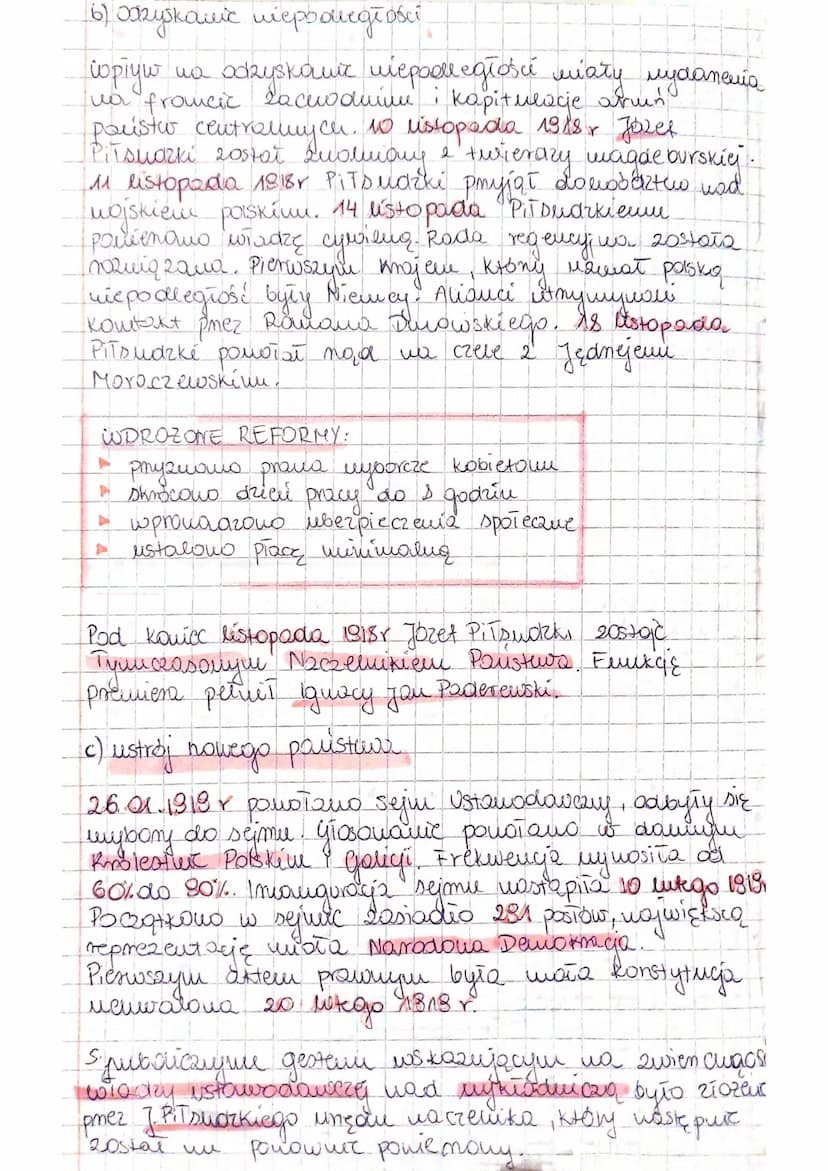 b) odzyskanie niepodległości
wpływ na odzyskanie niepodległości miały wydarzenia
na froncie zachodnim i kapitulacje armii
państw centralnych. 10 listopada 1918r Józef
Piłsudzki został zwolniony z twierdzy magdeburskiej.
11 listopada 1918r Piłsudzki przyjął dowództwo nad
wojskiem polskim. 14 listopada Piłsudzkiemu
powierzono władzę cywilną. Rada regencyjna została
rozwiązana. Pierwszym krajem, który uznał polską
niepodległość były Niemcy. Alianci utrzymywali
kontakt przez Romana Dmowskiego. 18 listopada
Piłsudzki powołał rząd na czele z Jędrzejem
Moraczewskim.
WDROŻONE REFORMY:
przyznano prawa wyborcze kobietom
skrócono dzień pracy do 8 godzin
wprowadzono ubezpieczenia społeczne
ustalono płacę minimalną
Pod koniec listopada 1918r Józef Piłsudzki został
Tymczasowym Naczelnikiem Państwa. Funkcję
premiera pełnił Ignacy Jan Paderewski.
c) ustrój nowego państwa
26.01.1919 r powołano sejm Ustawodawczy, odbyły się
wybory do sejmu. Głosowanie powołano w dawnym
Królestwie Polskim i Galicji. Frekwencja wynosiła od
60% do 90%. Inauguracja sejmu nastąpiła 10 lutego 1919r
Początkowo w sejmie zasiadło 291 posłów, największą
reprezentację miała Narodowa Demokracja.
Pierwszym aktem prawnym była mała konstytucja
uchwalona 20 lutego 1919 r.
Symbolicznym gestem wskazującym na zwierzchność
władzy ustawodawczej nad wykładniczą było złożenie
przez J. Piłsudzkiego urzędu naczelnika, który następnie
został mu ponownie powierzony.